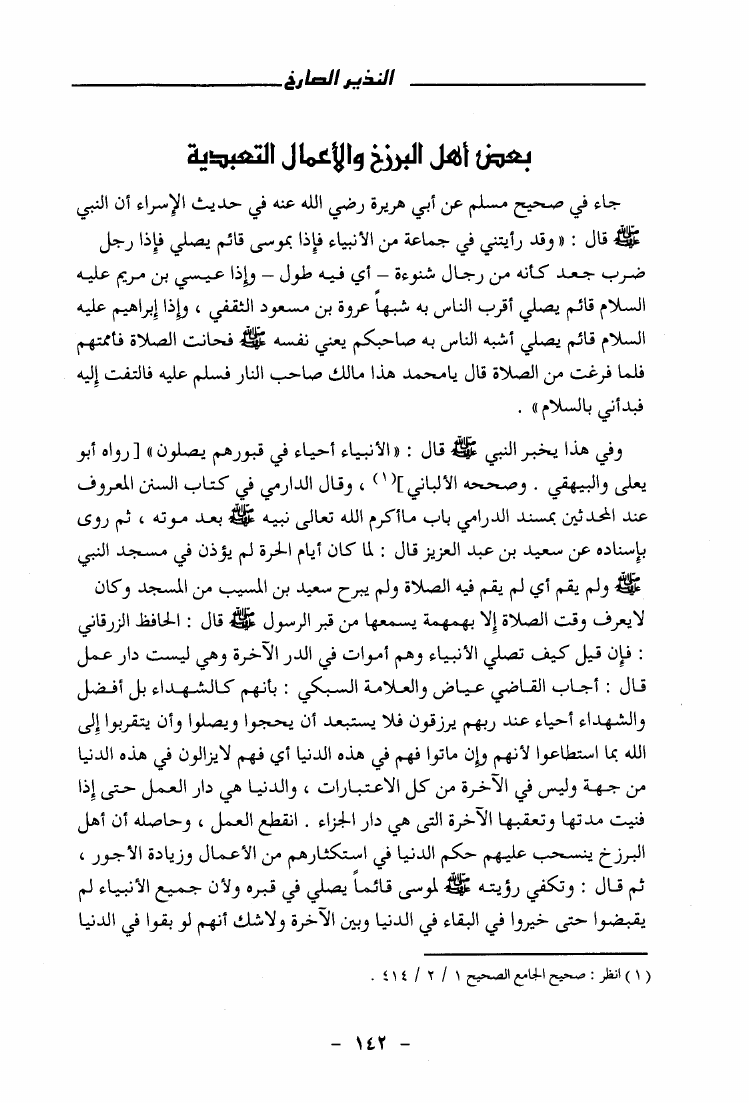 النذير الصارخ
بعض أهل البرزخ والأعمال التعبدية
جاء في صحيح مسلم عن أبي هريرة رضي الله عنه في حديث الإسراء أن النبي
ﷺ قال : « وقد رأيتني في جماعة من الأنبياء فإذا بموسى قائم يصلي فإذا رجل
ضرب جعد كأنه من رجال شنوءة – أي فيه طول – وإذا عيسي بن مريم عليه
السلام قائم يصلي أقرب الناس به شبهاً عروة بن مسعود الثقفي ، وإذا إبراهيم عليه
السلام قائم يصلي أشبه الناس به صاحبكم يعني نفسه ﷺ فحانت الصلاة فأممتهم
فلما فرغت من الصلاة قال يامحمد هذا مالك صاحب النار فسلم عليه فالتفت إليه
فبدأني بالسلام » .
وفي هذا يخبر النبي ﷺ قال : « الأنبياء أحياء في قبورهم يصلون » [ رواه أبو
يعلى والبيهقي . وصححه الألباني ](١) ، وقال الدارمي في كتاب السنن المعروف
عند المحدثين بمسند الدرامي باب ماأكرم الله تعالى نبيه ﷺ بعد موته ، ثم روى
بإسناده عن سعيد بن عبد العزيز قال : لما كان أيام الحرة لم يؤذن في مسجد النبي
ﷺ ولم يقم أي لم يقم فيه الصلاة ولم يبرح سعيد بن المسيب من المسجد وكان
لايعرف وقت الصلاة إلا بهمهمة يسمعها من قبر الرسول ﷺ قال : الحافظ الزرقاني
: فإن قيل كيف تصلي الأنبياء وهم أموات في الدر الآخرة وهي ليست دار عمل
قال : أجاب القاضي عياض والعلامة السبكي : بأنهم كالشهداء بل أفضل
والشهداء أحياء عند ربهم يرزقون فلا يستبعد أن يحجوا ويصلوا وأن يتقربوا إلى
الله بما استطاعوا لأنهم وإن ماتوا فهم في هذه الدنيا أي فهم لايزالون في هذه الدنيا
من جهة وليس في الآخرة من كل الاعتبارات ، والدنيا هي دار العمل حتى إذا
فنيت مدتها وتعقبها الآخرة التى هي دار الجزاء . انقطع العمل ، وحاصله أن أهل
البرزخ ينسحب عليهم حكم الدنيا في استكثارهم من الأعمال وزيادة الأجور ،
ثم قال : وتكفي رؤيته ﷺ لموسى قائماً يصلي في قبره ولأن جميع الأنبياء لم
يقبضوا حتى خيروا في البقاء في الدنيا وبين الآخرة ولاشك أنهم لو بقوا في الدنيا
( ١ ) انظر : صحيح الجامع الصحيح ١ / ٢ / ٤١٤ .
– ١٤٢ –